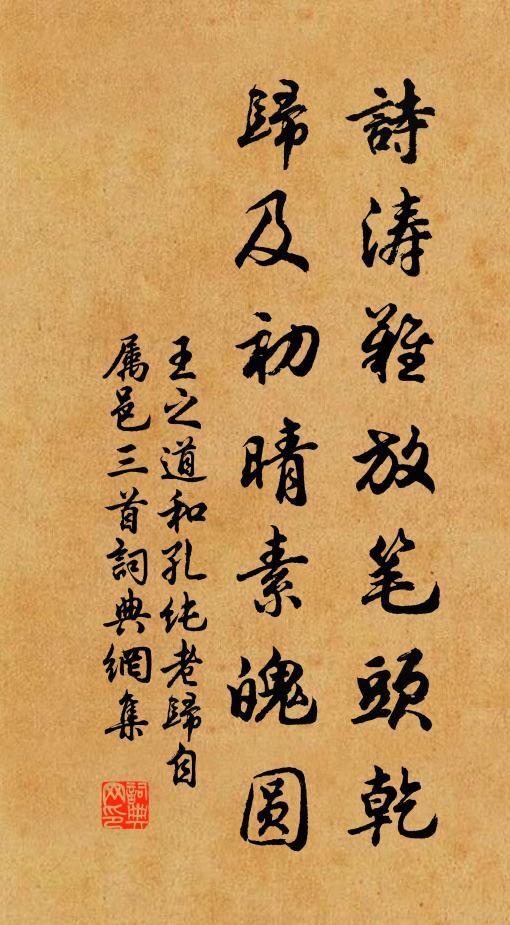 詩涛難放笔頭乾
歸及初晴素魄圆
王之道和孔纯老歸自
属邑三首詞典網集
詞典网印